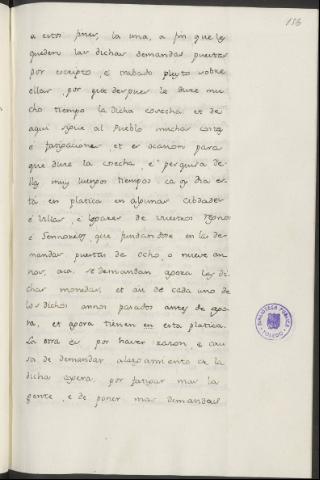 156
a estos fines, la una, a fin que les
queden las dichas demandas puestas
por escripto, é trabado pleyto sobre
ellas, por que despues le dure mu
cho tiempo la dicha cosecha et de
aqui sigue al Pueblo muchas costas
é fatigaciones, et es ocasion para
que dure la cosecha, é pesquisa de
lla muy luengos tiempos ca oy dia es
tá en platica en algunas cibdades
é villas, é logares de vuestros regnos
é Sennorios, que fundandose en las de
mandas puestas de ocho, o nueve an
nos, aca, se demandan agora las di
chas monedas, et aun de cada uno de
los dichos annos pasados antes de ago
ra, et agora tienen en esta platica.
La otra es, por haver razon, e cau
sa de demandar alargamiento en la
dicha espera, por fatigar mas la
gente, é de poner mas demandas
BIBLIOTECA PUBLICA
TOLEDO